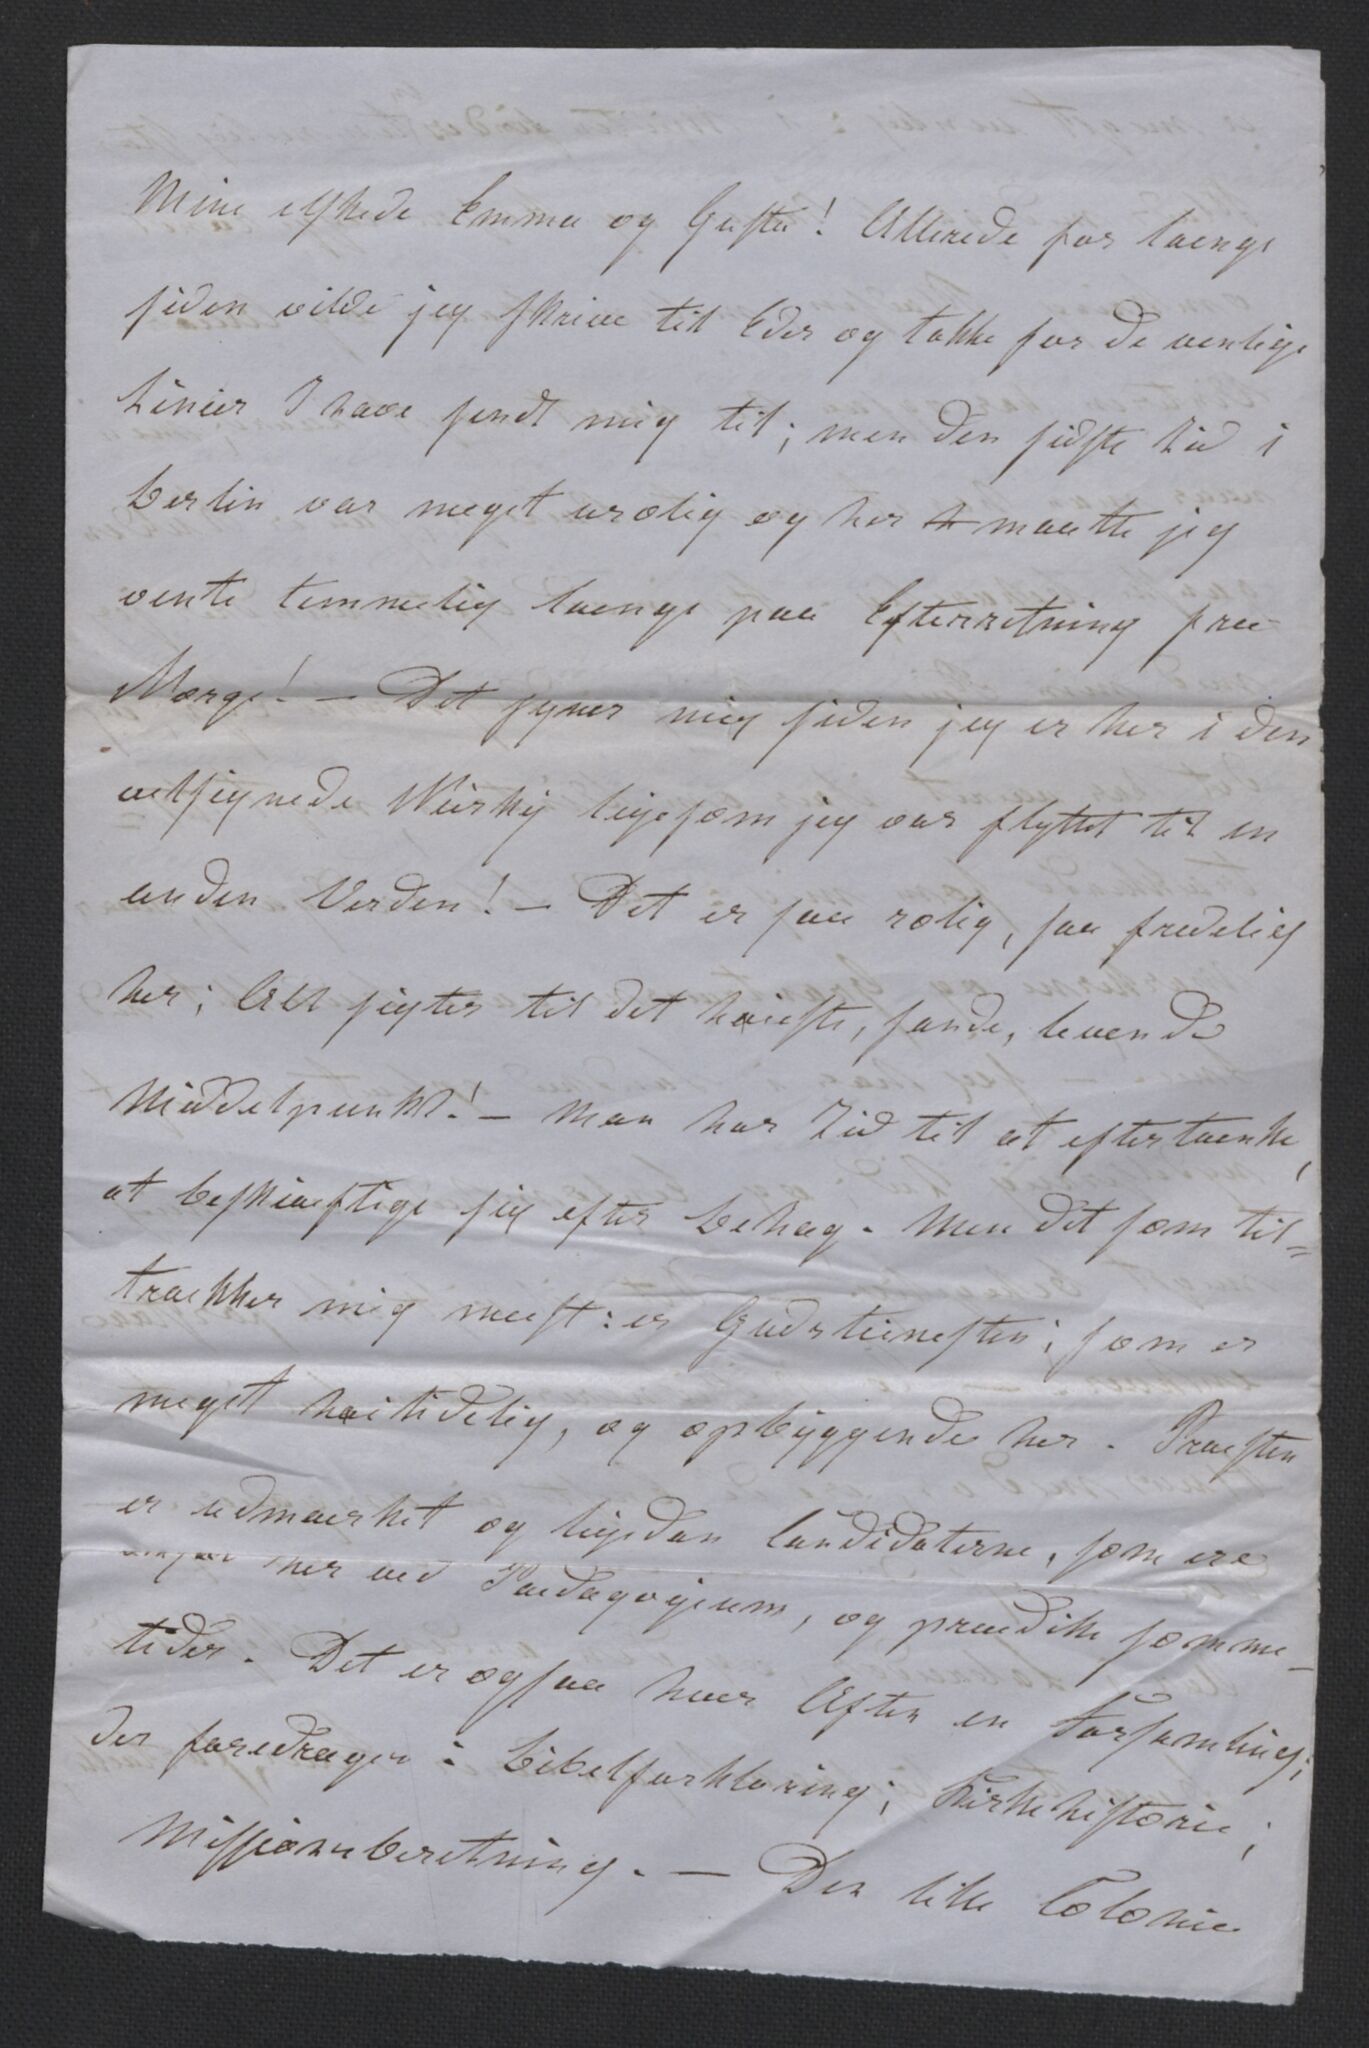 Mine elskede Emma og Gusta! Allerede for laenge
siden vilde jeg skrive til Eder og takke for de venlige
Linier I have sendt mig til; men den sidste Tid i
Berlin var meget urolig og her maatte jeg
vente temmelig laenge paa Efterretning fra
Norge! — Det synes mig siden jeg er her i den
velsignede Niesky ligesom jeg var flyttet til en
anden Verden! — Det er saa rolig, saa fredelig
her; Alt sigter til det høieste, sande, levende
Middelpunkt! — Man har Tid til at eftertaenke,
at beskjaeftige sig efter Behag. Men det som til=
traekker mig meest: er Gudstienesten; som er
meget høitidelig, og opbyggende her. Praesten
er udmaerket og ligedan Candidaterne, som ere
her ved Paedagogium, og praedike somme_
tider. Det er ogsaa hver Aften en Forsamling;
der foredrages: Bibelforklaring; Kirkehistorie;
Missionsberetning. — Den lille Colonie